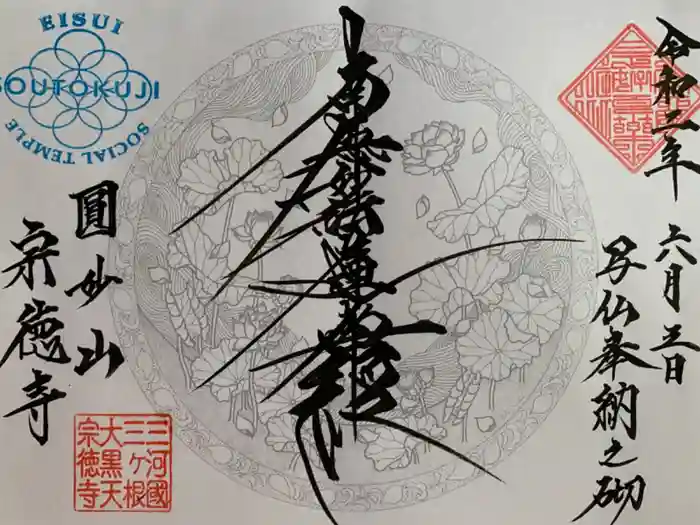 EISUI
SOUTOKUJI
SOCIAL TEMPLE
令和三年 六月五日
写仏奉納之砌
南無妙法蓮華経
圓妙山
宗徳寺
三河國
三ヶ根
大黒天
宗徳寺